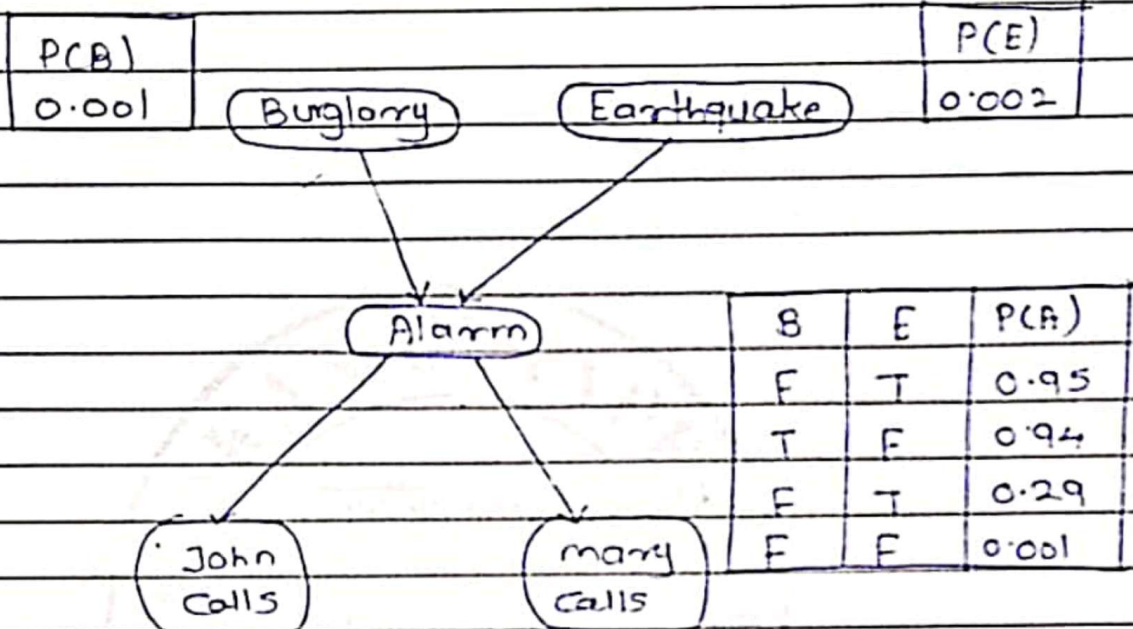 P(B)
0.001
P(E)
0.002
Burglorry
Earthquake
Alarm
B E P(A)
F T 0.95
T F 0.94
F T 0.29
F F 0.001
John
Calls
mary
Calls